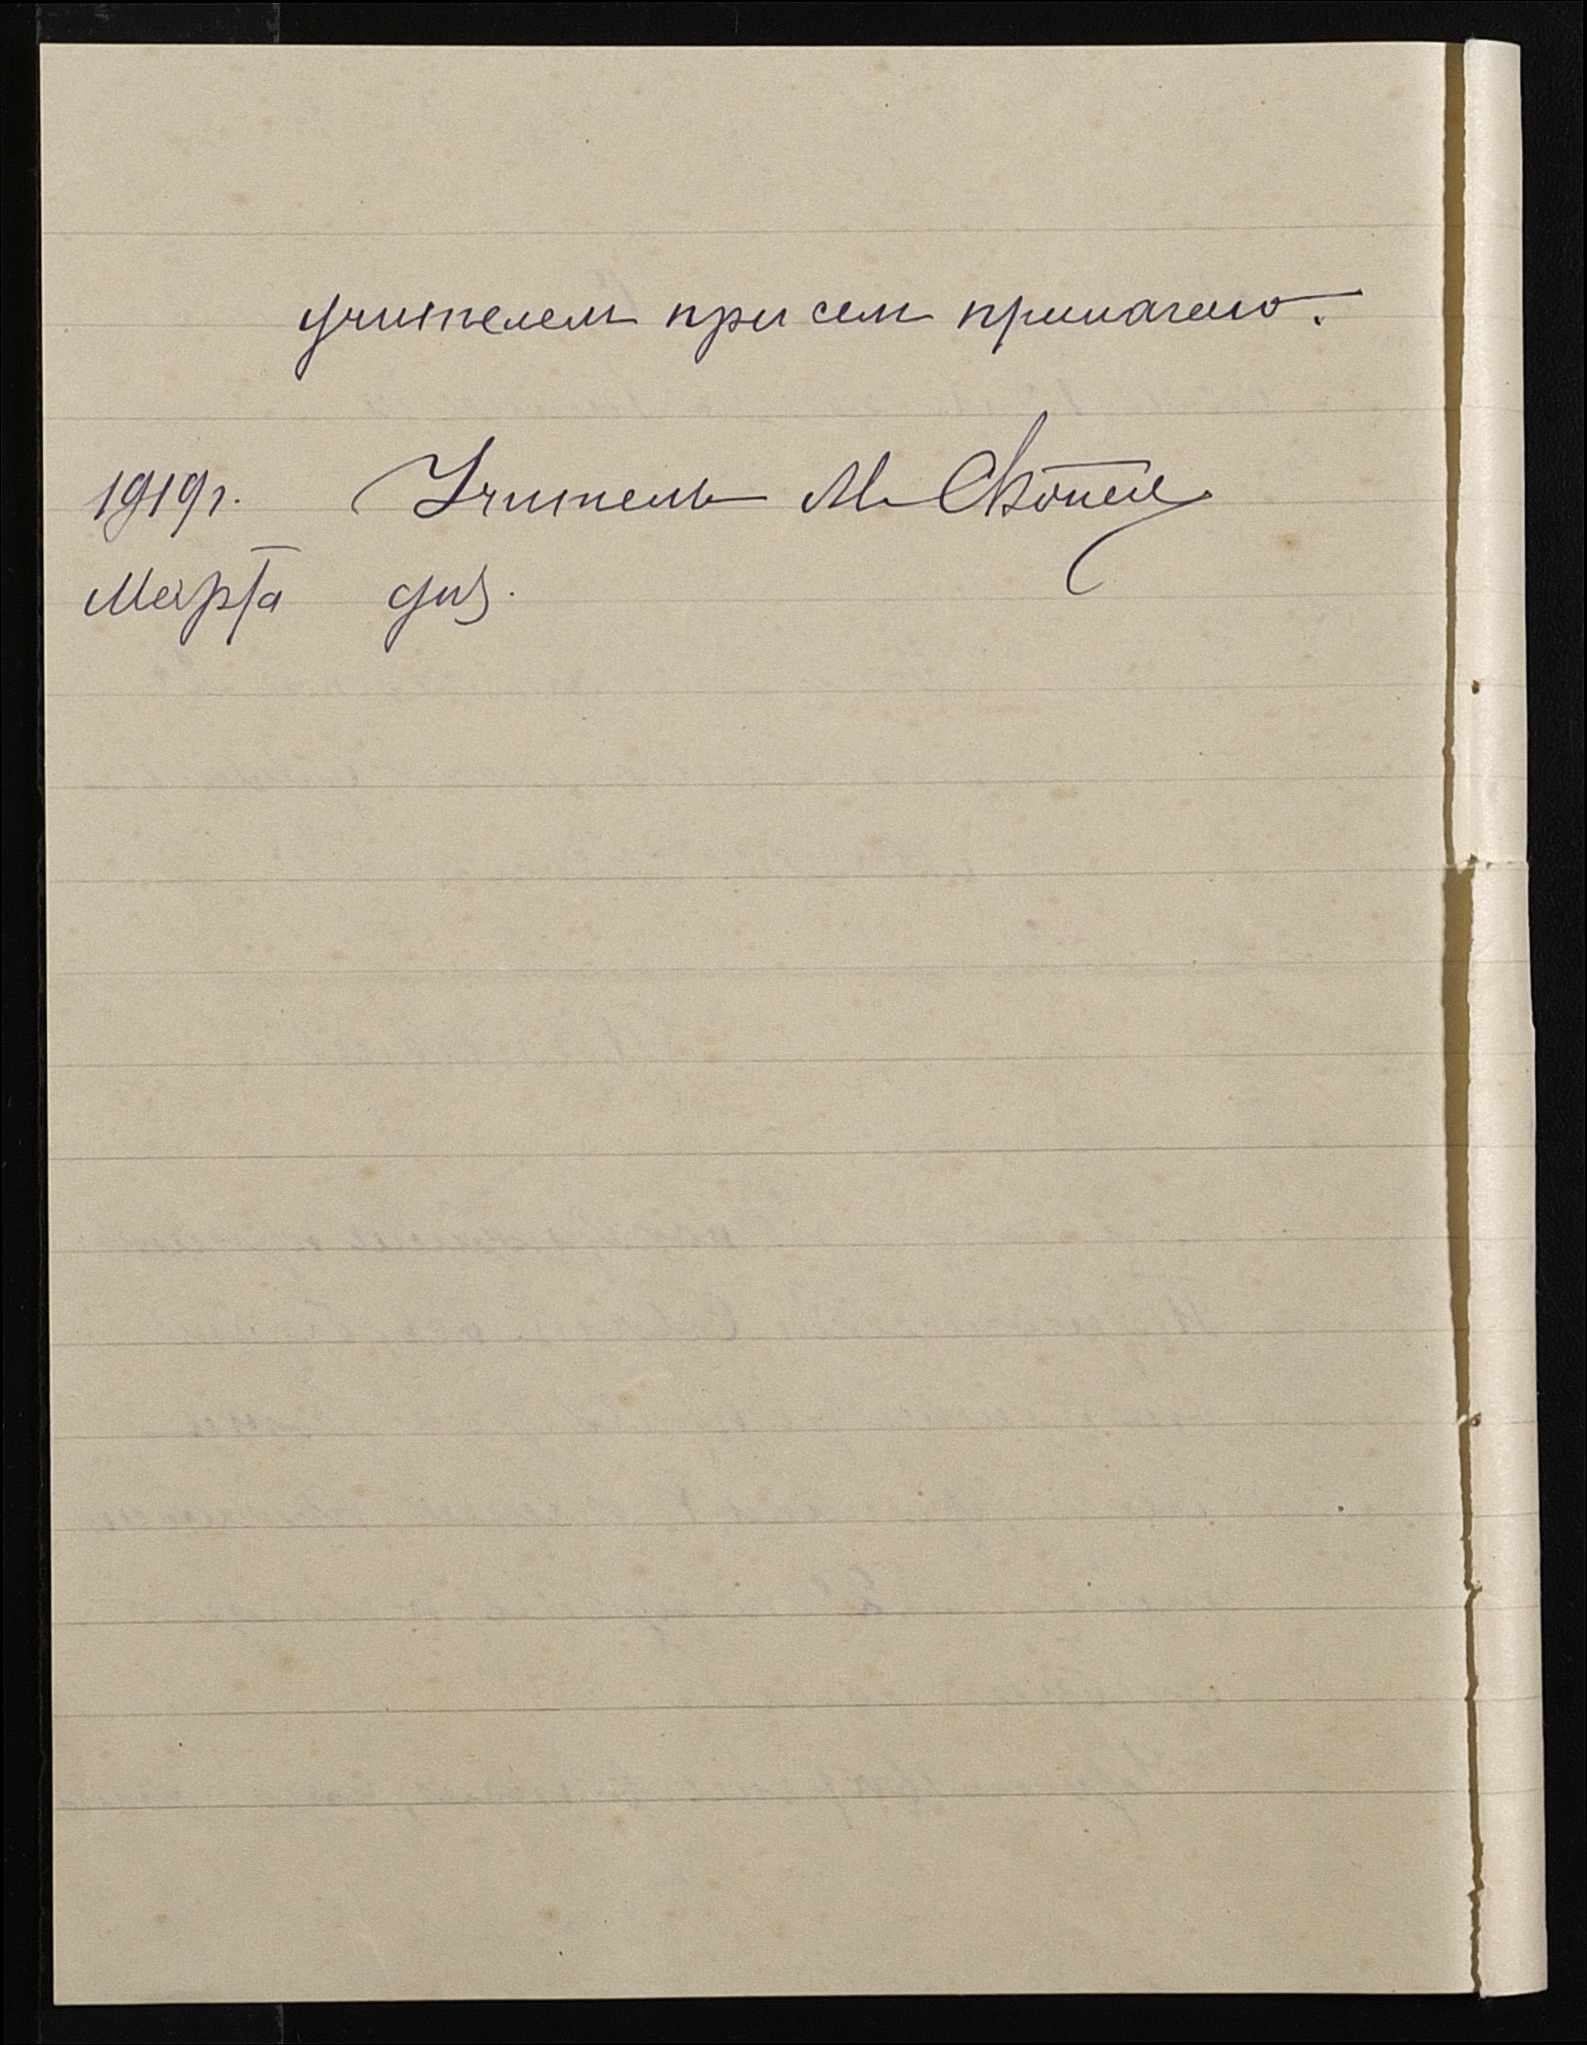 учителем при сем прилагаю.
1919 г. Учитель М.
Марта дня.